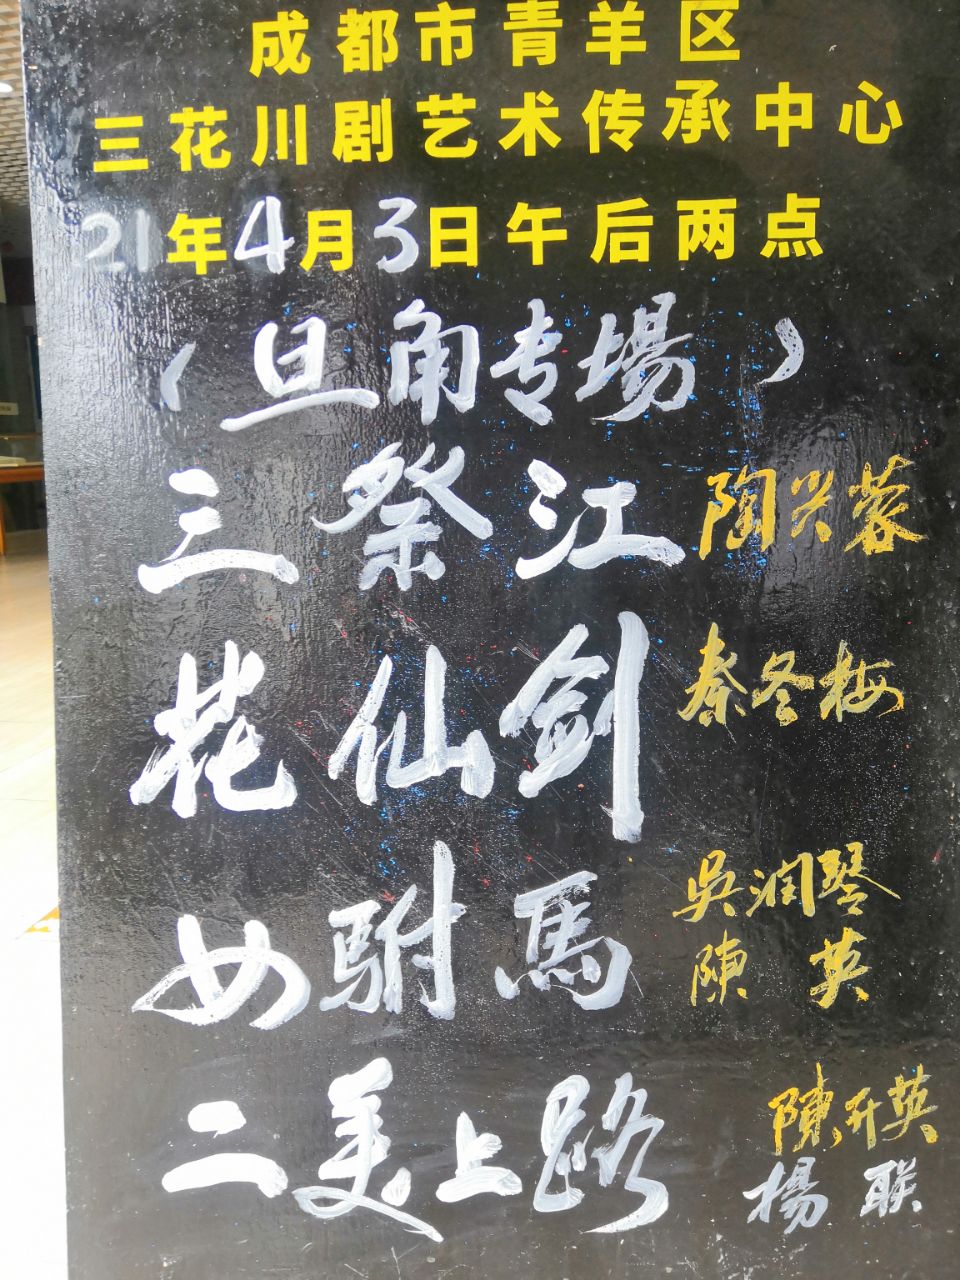 成都市青羊区
三花川剧艺术传承中心
21年4月3日午后两点
（旦角专場）
三祭江 陶兴蓉
花仙剑 秦冬梅
女駙馬 吳润琴
陳 英
二美上路 陳开英
楊 联